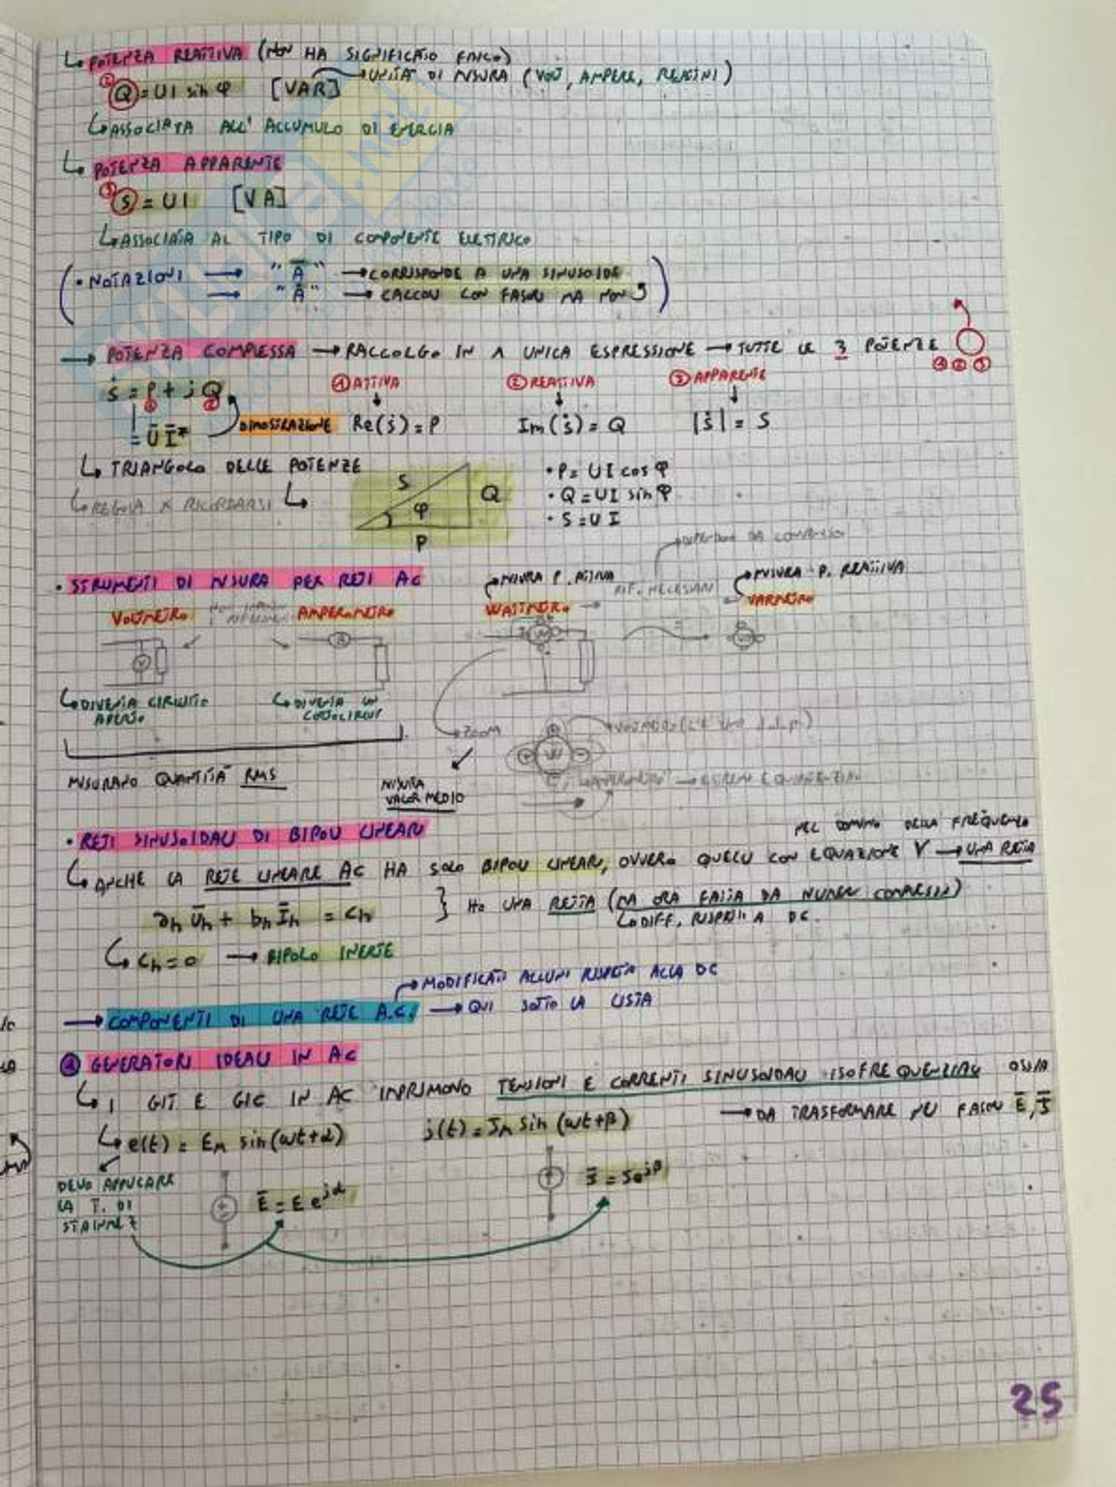 ↳ POTENZA REATTIVA (NON HA SIGNIFICATO FISICO)
② Q = UI sin φ [VAR] → UNITÀ DI MISURA (VOLT, AMPERE, REATTIVI)
↳ ASSOCIATA ALL'ACCUMULO DI ENERGIA
↳ POTENZA APPARENTE
③ S = UI [VA]
↳ ASSOCIATA AL TIPO DI COMPONENTE ELETTRICO
(• NOTAZIONI → "Ā" → CORRISPONDE A UNA SINUSOIDE
→ "Ȧ" → CALCOLI CON FASORI MA NON )
→ POTENZA COMPLESSA → RACCOLGO IN 1 UNICA ESPRESSIONE → TUTTE LE 3 POTENZE
① ② ③
① ATTIVA ② REATTIVA ③ APPARENTE
Ṡ = P + jQ
① ②
= Ū Ī* DIMOSTRAZIONE Re(Ṡ) = P Im(Ṡ) = Q |Ṡ| = S
↳ TRIANGOLO DELLE POTENZE
↳ REGOLA X RICORDARSI ↳
S φ Q P
• P = UI cos φ
• Q = UI sin φ
• S = UI
• STRUMENTI DI MISURA PER RETI AC
MISURA P. ATTIVA
MISURA P. REATTIVA
VOLTMETRO AMPEROMETRO WATTMETRO VARMETRO
V A W
↳ DIVENTA CIRCUITO APERTO
↳ DIVENTA UN CORTOCIRCUITO
ZOOM
MISURANO QUANTITÀ RMS
MISURA VALOR MEDIO
• RETI SINUSOIDALI DI BIPOLI LINEARI
NEL DOMINIO DELLA FREQUENZA
↳ ANCHE LA RETE LINEARE AC HA SOLO BIPOLI LINEARI, OVVERO QUELLI CON EQUAZIONE → UNA RETTA
ah Ūh + bh Īh = ch } HO UNA RETTA (MA ORA FATTA DA NUMERI COMPLESSI)
↳ DIFF. RISPETTO A DC.
↳ ch = 0 → BIPOLO INERTE
→ MODIFICATI ALCUNI RISPETTO ALLA DC
→ COMPONENTI DI UNA RETE A.C. → QUI SOTTO LA LISTA
GENERATORI IDEALI IN AC
↳ I GIT E GIC IN AC IMPRIMONO TENSIONI E CORRENTI SINUSOIDALI ISOFREQUENZIALI OSSIA
↳ e(t) = EM sin(ωt+α) j(t) = JM sin (ωt+β) → DA TRASFORMARE NEI FASORI Ē, J̄
DEVO APPLICARE
LA T. DI
STEINMETZ
Ē = E e^jα
J̄ = J e^jβ
25